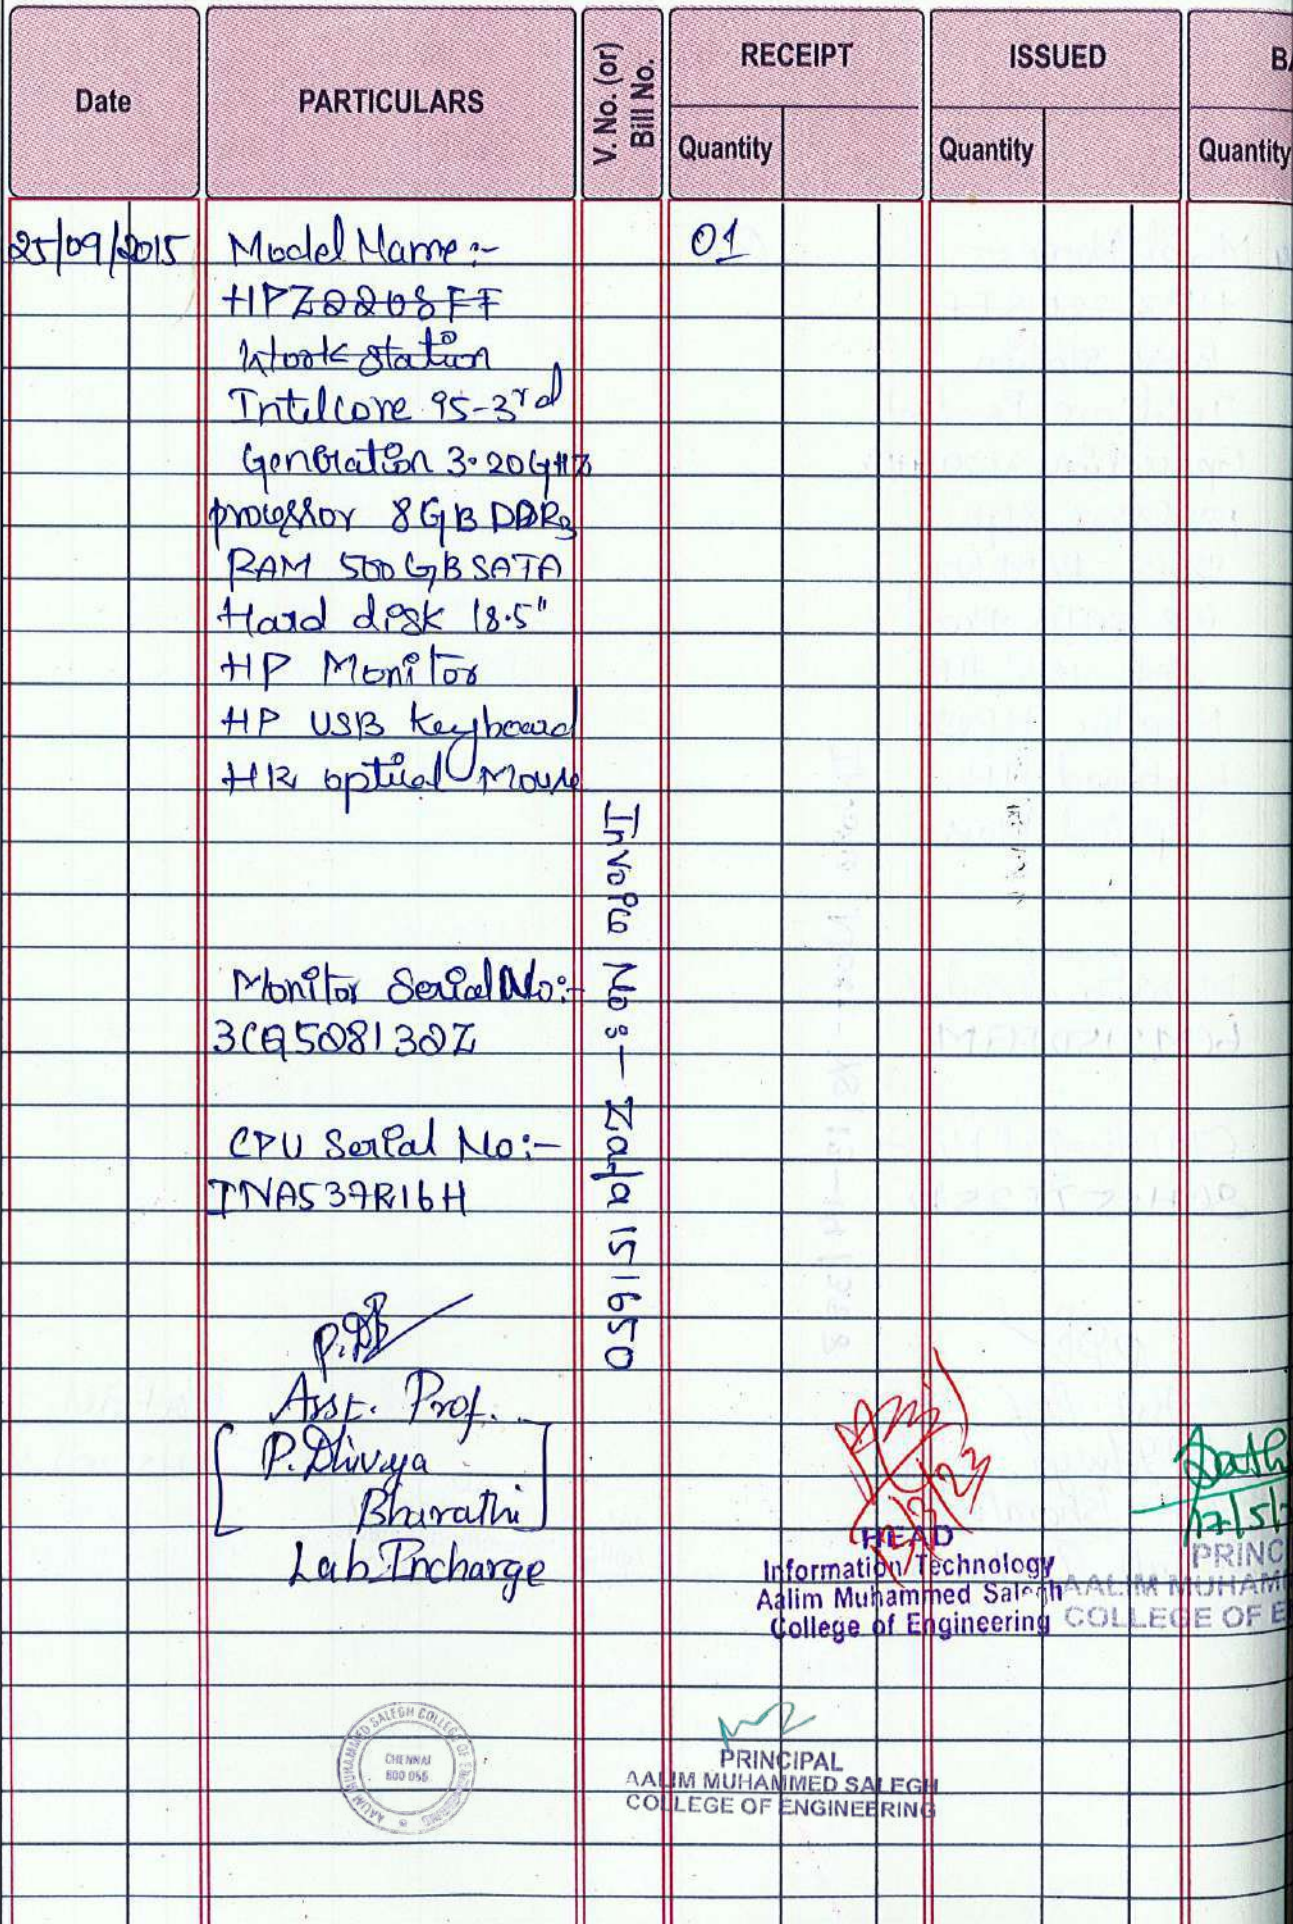 Date
PARTICULARS
V. No. (or)
Bill No.
RECEIPT
ISSUED
Quantity
Quantity
Quantity
25/09/2015
Model Name :-
01
HPZ220SFF
Work station
Intel core i5-3rd
Generation 3.20GHZ
processor 8GB DDR3
RAM 500GB SATA
Hard disk 18.5"
HP Monitor
HP USB Keyboard
HP optical Mouse
Invoice No:- Zafa 151650
Monitor Serial No:-
3CQ508130Z
CPU Serial No:-
INA537R16H
Asst. Prof.
[P. Dhivya
Bharathi]
Lab Incharge
HEAD
Information Technology
Aalim Muhammed Salegh
College of Engineering
PRINC
AALIM MUHAMM
COLLEGE OF E
AALIM MUHAMMED SALEGH COLLEGE OF ENGINEERING
CHENNAI
600 055
PRINCIPAL
AALIM MUHAMMED SALEGH
COLLEGE OF ENGINEERING